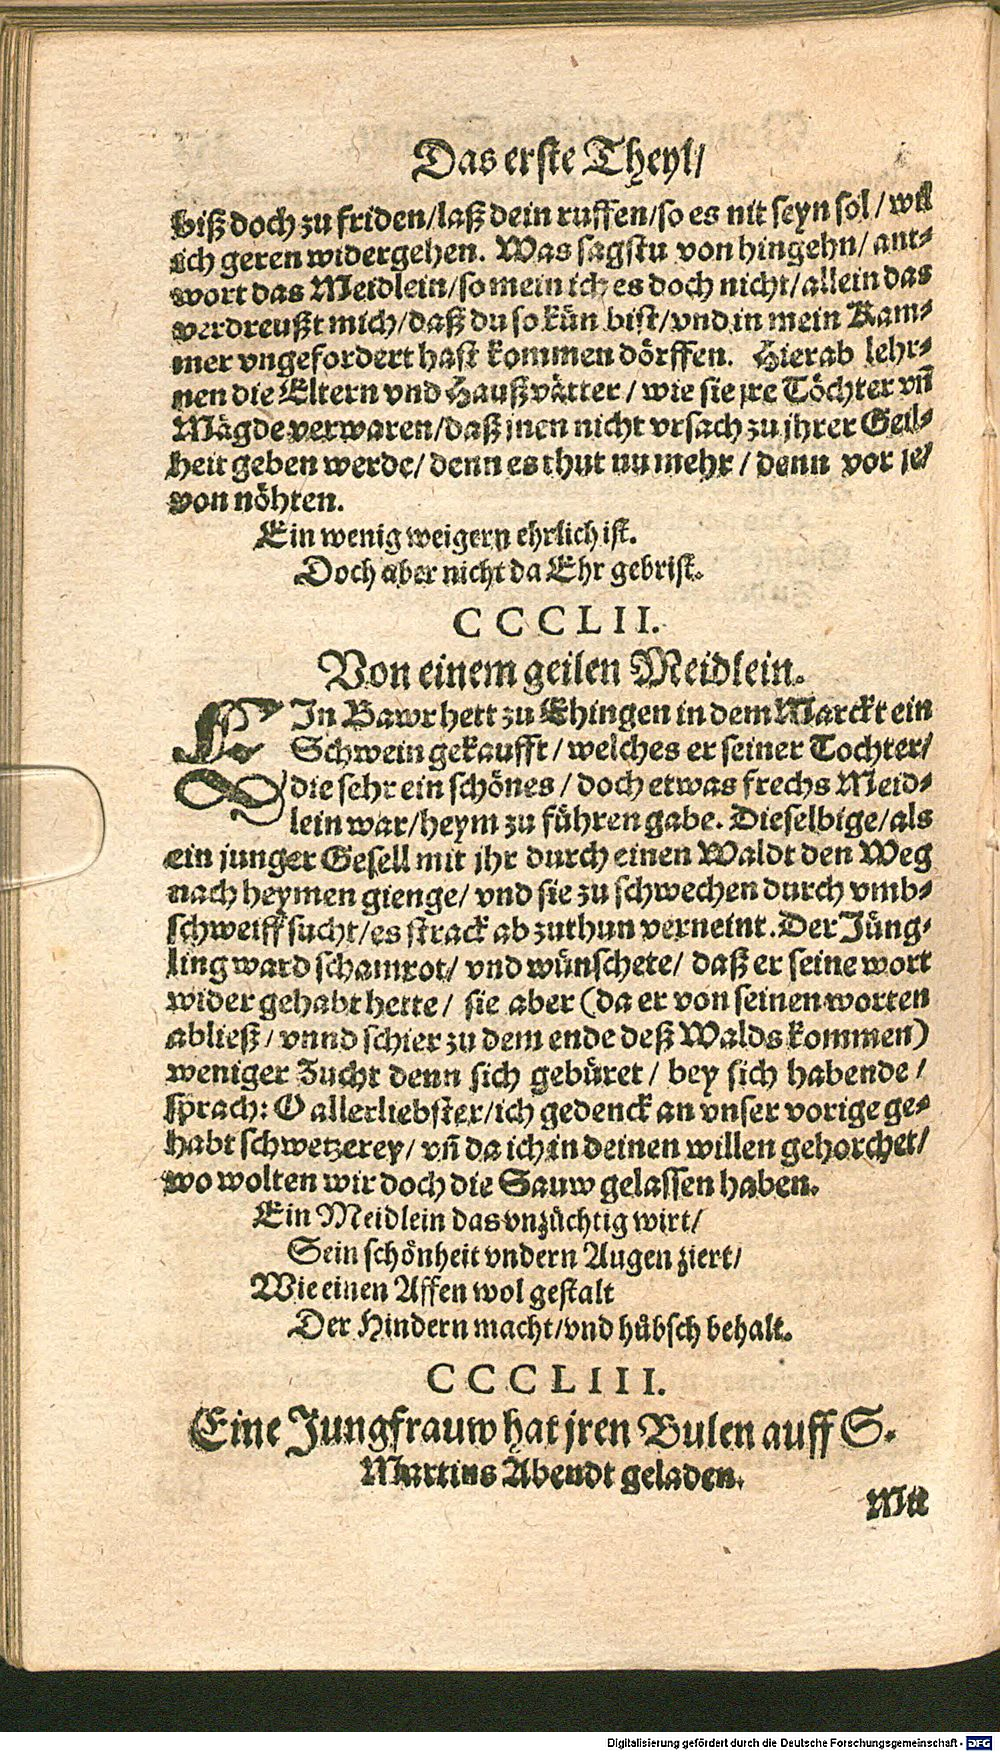 Das erste Theyl/
biß doch zu friden/laß dein ruffen/so es nit seyn sol/will
ich geren widergehen. Was sagstu von hingehn/ant-
wort das Meidlein/so mein ich es doch nicht/allein das
verdreußt mich/daß du so kün bist/vnd in mein Kam-
mer vngefordert hast kommen dörffen. Hierab lehr-
nen die Eltern vnd Haußvätter/wie sie jre Töchter vñ
Mägde verwaren/daß jnen nicht vrsach zu jhrer Geil-
heit geben werde/denn es thut nu mehr/denn vor je/
von nöhten.
Ein wenig weigern ehrlich ist.
Doch aber nicht da Ehr gebrist.
CCCLII.
Von einem geilen Meidlein.
EIn Bawr hett zu Ehingen in dem Marckt ein
Schwein gekaufft/welches er seiner Tochter/
die sehr ein schönes/doch etwas frechs Meid-
lein war/heym zu führen gabe. Dieselbige/als
ein junger Gesell mit jhr durch einen Waldt den Weg
nach heymen gienge/vnd sie zu schwechen durch vmb-
schweiff sucht/es strack ab zuthun verneint. Der Jüng-
ling ward schamrot/vnd wünschete/daß er seine wort
wider gehabt hette/sie aber (da er von seinen worten
abließ/vnnd schier zu dem ende deß Walds kommen)
weniger Zucht denn sich gebüret/bey sich habende/
sprach: O allerliebster/ich gedenck an vnser vorige ge-
habt schwetzerey/vñ da ich in deinen willen gehorchet/
wo wolten wir doch die Sauw gelassen haben.
Ein Meidlein das vnzüchtig wirt/
Sein schönheit vndern Augen ziert/
Wie einen Affen wol gestalt
Der Hindern macht/vnd hübsch behalt.
CCCLIII.
Eine Jungfrauw hat jren Bulen auff S.
Martins Abendt geladen.
Mit
Digitalisierung gefördert durch die Deutsche Forschungsgemeinschaft - DFG